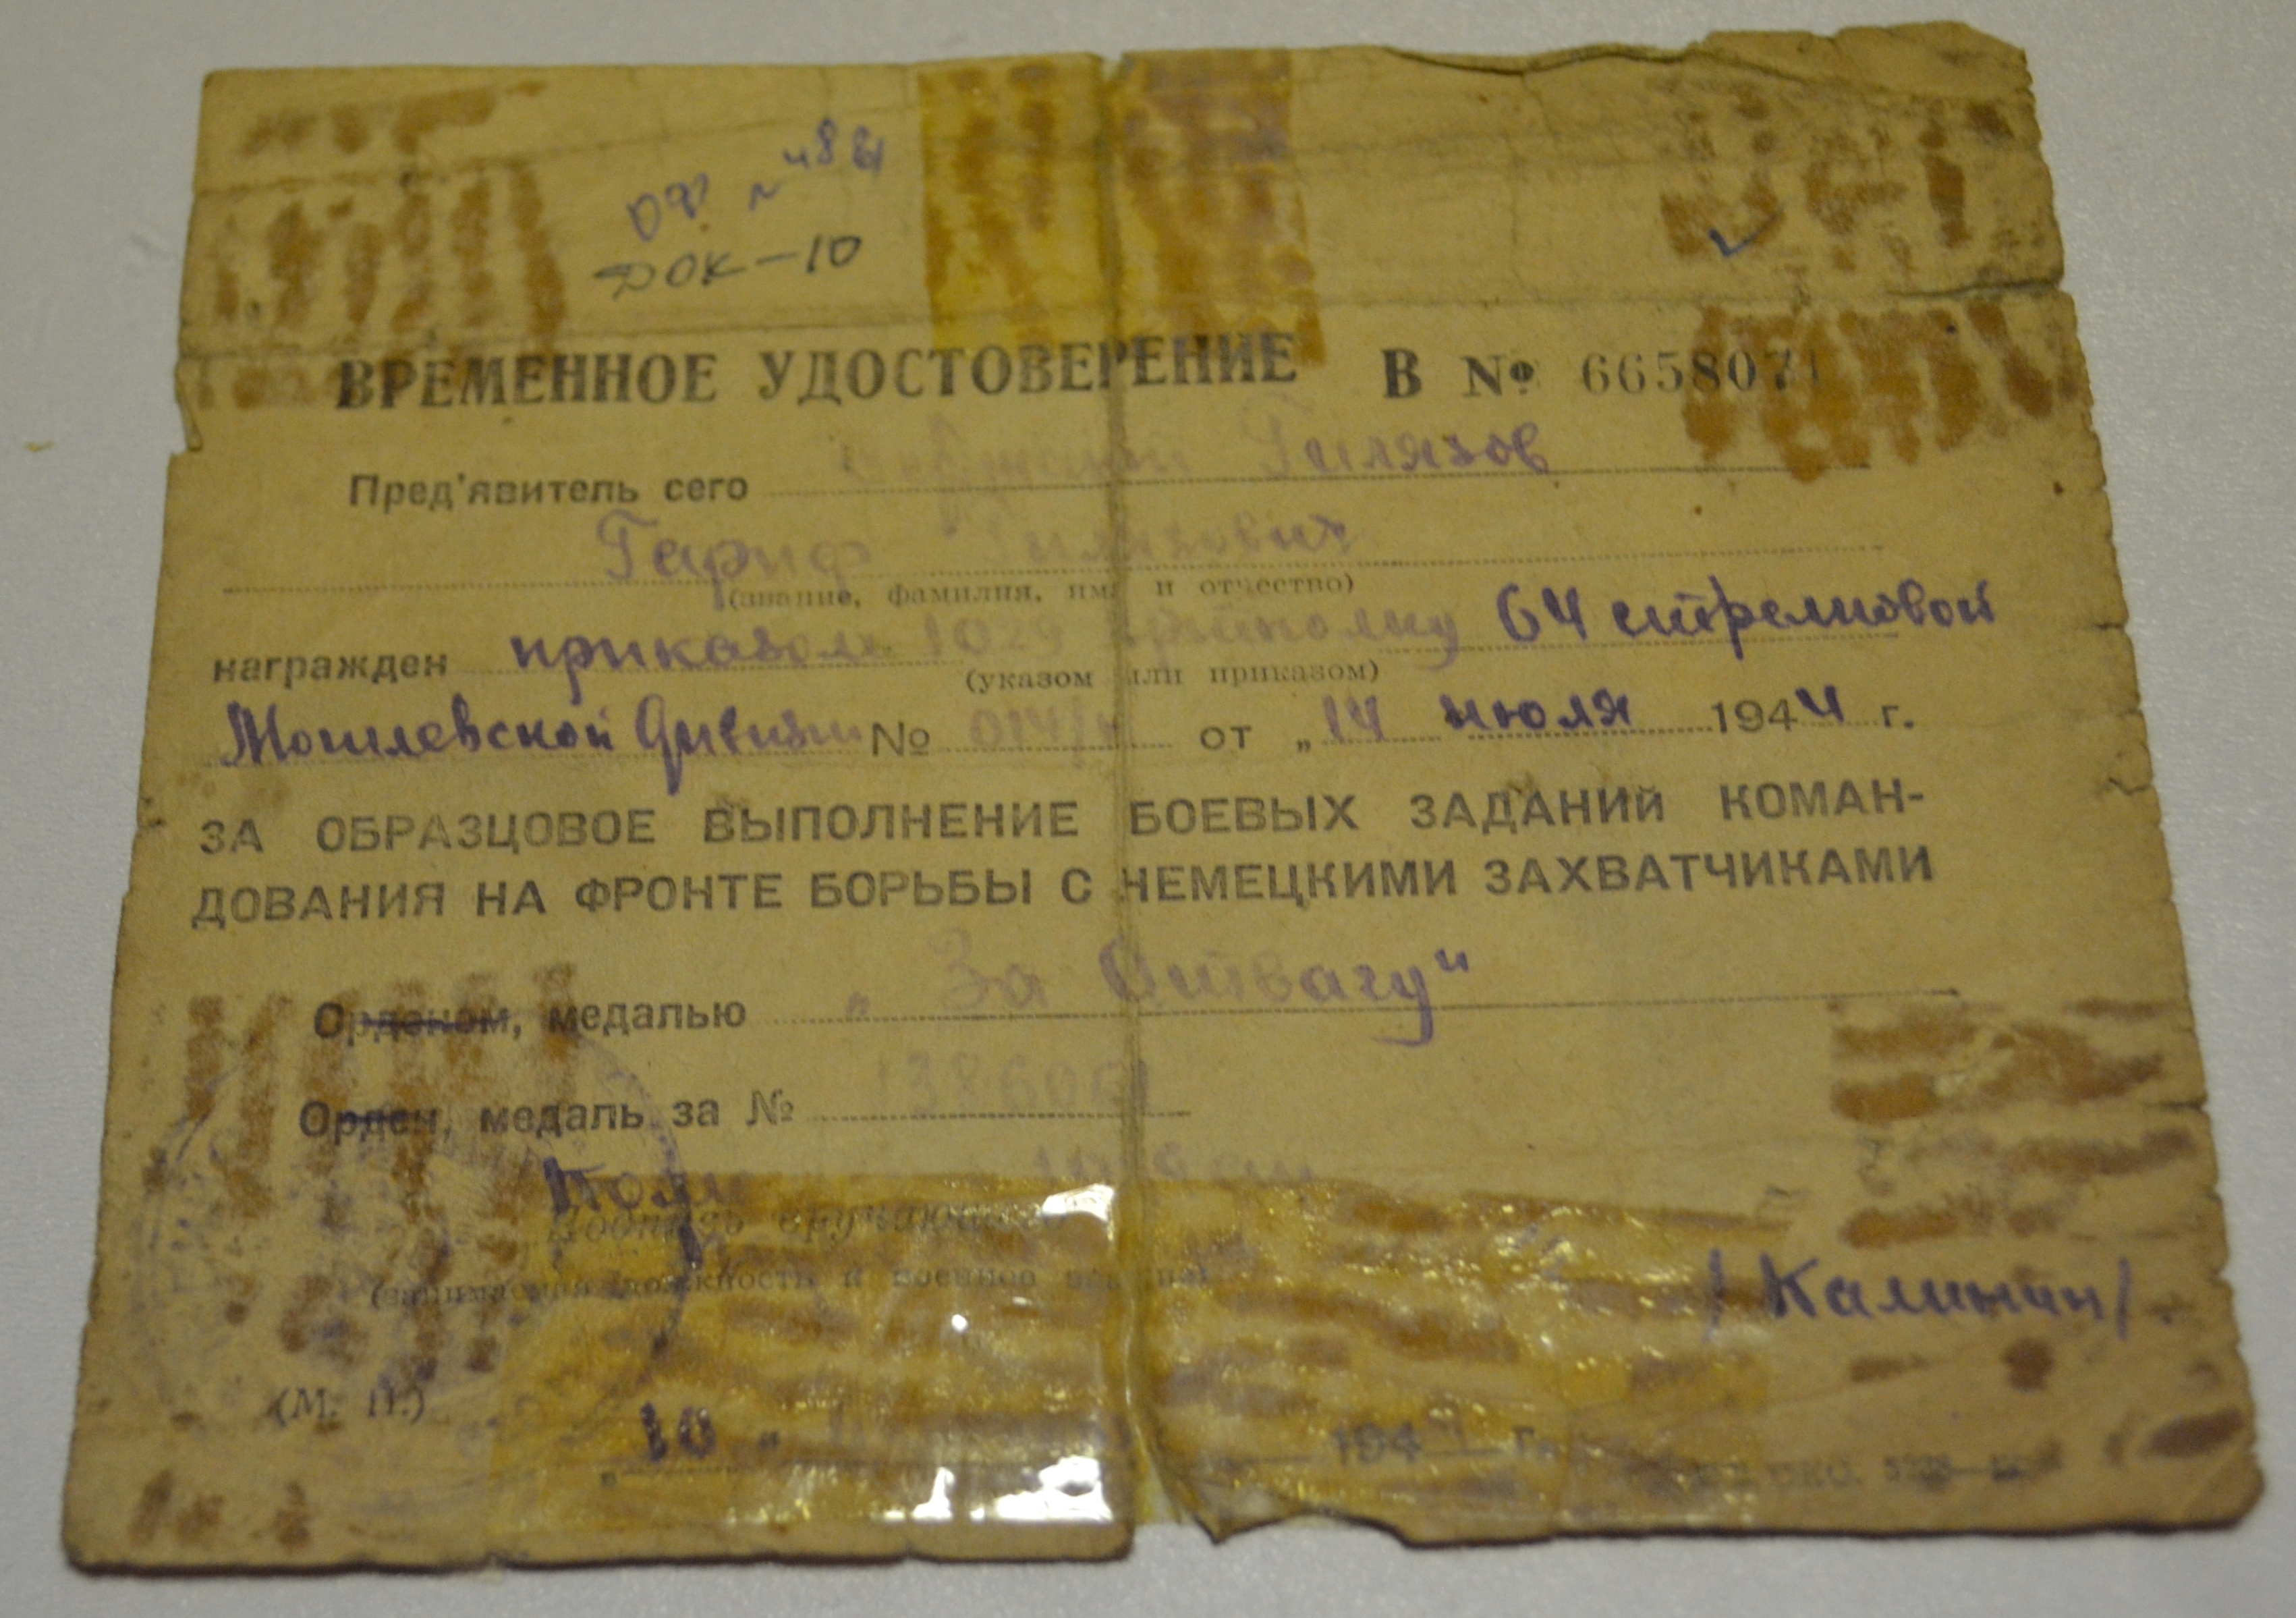 ОФ № 4881
ДОК-10
ВРЕМЕННОЕ УДОСТОВЕРЕНИЕ В № 6658071
Пред'явитель сего Гилязов
Гариф Гилязович
(звание, фамилия, имя и отчество)
награжден приказом 1029 артполку 64 стрелковой
(указом или приказом)
Могилевской дивизии № 014/н от „14 июля 1944 г.
ЗА ОБРАЗЦОВОЕ ВЫПОЛНЕНИЕ БОЕВЫХ ЗАДАНИЙ КОМАН-
ДОВАНИЯ НА ФРОНТЕ БОРЬБЫ С НЕМЕЦКИМИ ЗАХВАТЧИКАМИ
Орденом, медалью „За Отвагу"
Орден, медаль за № 1386061
Подпись вручающего
(занимаемая должность и военное звание)
/Калинин/.
(М. П.)
„10" 1944 г.